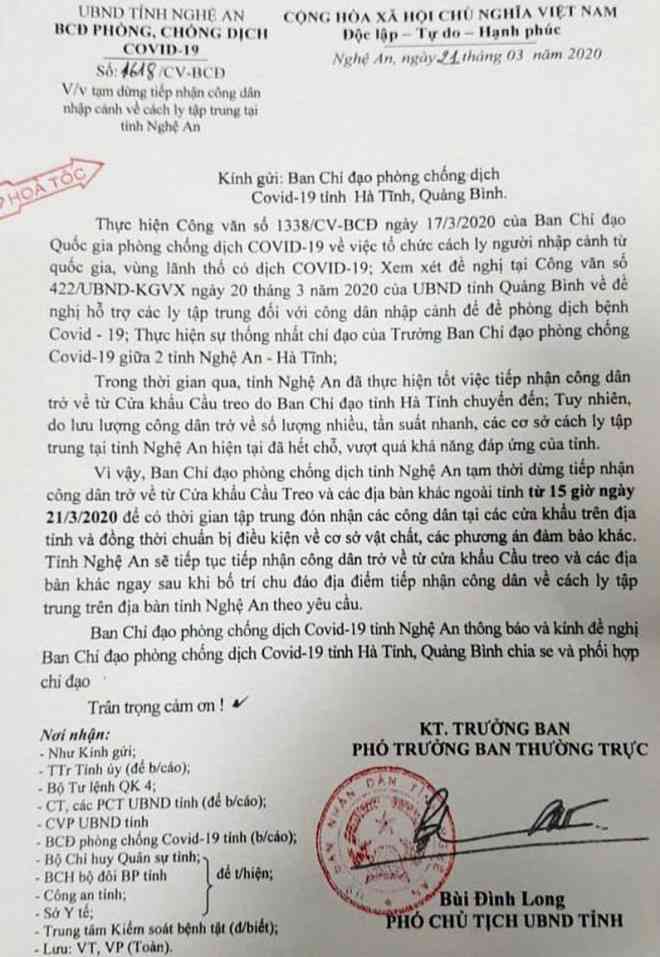 UBND TỈNH NGHỆ AN
BCĐ PHÒNG, CHỐNG DỊCH
COVID-19
Số: 1618/CV-BCĐ
V/v tạm dừng tiếp nhận công dân
nhập cảnh về cách ly tập trung tại
tỉnh Nghệ An
CỘNG HÒA XÃ HỘI CHỦ NGHĨA VIỆT NAM
Độc lập – Tự do – Hạnh phúc
Nghệ An, ngày 21 tháng 03 năm 2020
HOẢ TỐC
Kính gửi: Ban Chỉ đạo phòng chống dịch
Covid-19 tỉnh Hà Tĩnh, Quảng Bình.
Thực hiện Công văn số 1338/CV-BCĐ ngày 17/3/2020 của Ban Chỉ đạo
Quốc gia phòng chống dịch COVID-19 về việc tổ chức cách ly người nhập cảnh từ
quốc gia, vùng lãnh thổ có dịch COVID-19; Xem xét đề nghị tại Công văn số
422/UBND-KGVX ngày 20 tháng 3 năm 2020 của UBND tỉnh Quảng Bình về đề
nghị hỗ trợ các ly tập trung đối với công dân nhập cảnh để đề phòng dịch bệnh
Covid - 19; Thực hiện sự thống nhất chỉ đạo của Trưởng Ban Chỉ đạo phòng chống
Covid-19 giữa 2 tỉnh Nghệ An - Hà Tĩnh;
Trong thời gian qua, tỉnh Nghệ An đã thực hiện tốt việc tiếp nhận công dân
trở về từ Cửa khẩu Cầu treo do Ban Chỉ đạo tỉnh Hà Tĩnh chuyển đến; Tuy nhiên,
do lưu lượng công dân trở về số lượng nhiều, tần suất nhanh, các cơ sở cách ly tập
trung tại tỉnh Nghệ An hiện tại đã hết chỗ, vượt quá khả năng đáp ứng của tỉnh.
Vì vậy, Ban Chỉ đạo phòng chống dịch tỉnh Nghệ An tạm thời dừng tiếp nhận
công dân trở về từ Cửa khẩu Cầu Treo và các địa bàn khác ngoài tỉnh từ 15 giờ ngày
21/3/2020 để có thời gian tập trung đón nhận các công dân tại các cửa khẩu trên địa
tỉnh và đồng thời chuẩn bị điều kiện về cơ sở vật chất, các phương án đảm bảo khác.
Tỉnh Nghệ An sẽ tiếp tục tiếp nhận công dân trở về từ cửa khẩu Cầu treo và các địa
bàn khác ngay sau khi bố trí chu đáo địa điểm tiếp nhận công dân về cách ly tập
trung trên địa bàn tỉnh Nghệ An theo yêu cầu.
Ban Chỉ đạo phòng chống dịch Covid-19 tỉnh Nghệ An thông báo và kính đề nghị
Ban Chỉ đạo phòng chống dịch Covid-19 tỉnh Hà Tĩnh, Quảng Bình chia se và phối hợp
chỉ đạo
Trân trọng cảm ơn !
Nơi nhận:
- Như Kính gửi;
- TTr Tỉnh ủy (để b/cáo);
- Bộ Tư lệnh QK 4;
- CT, các PCT UBND tỉnh (để b/cáo);
- CVP UBND tỉnh
- BCĐ phòng chống Covid-19 tỉnh (b/cáo);
- Bộ Chỉ huy Quân sự tỉnh;
- BCH bộ đội BP tỉnh
để t/hiện;
- Công an tỉnh;
- Sở Y tế;
- Trung tâm Kiểm soát bệnh tật (đ/biết);
- Lưu: VT, VP (Toàn).
KT. TRƯỞNG BAN
PHÓ TRƯỞNG BAN THƯỜNG TRỰC
Bùi Đình Long
PHÓ CHỦ TỊCH UBND TỈNH